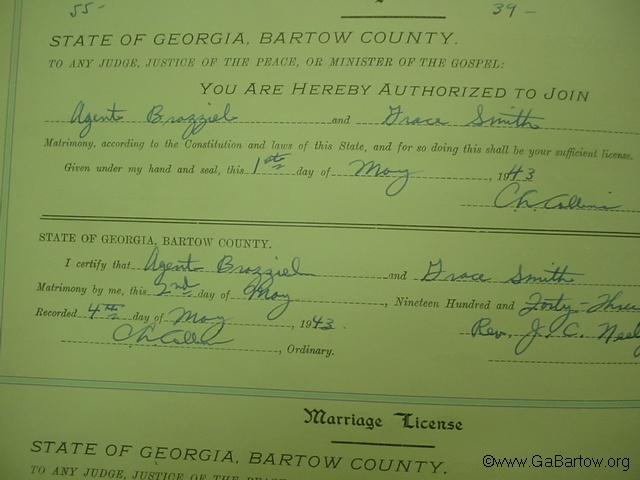 55- 39-
STATE OF GEORGIA, BARTOW COUNTY.
TO ANY JUDGE, JUSTICE OF THE PEACE, OR MINISTER OF THE GOSPEL:
YOU ARE HEREBY AUTHORIZED TO JOIN
Agent Brazziel and Grace Smith
Matrimony, according to the Constitution and laws of this State, and for so doing this shall be your sufficient license.
Given under my hand and seal, this 1st day of May, 1943
STATE OF GEORGIA, BARTOW COUNTY.
I certify that Agent Brazziel and Grace Smith
Matrimony by me, this 2nd day of May, Nineteen Hundred and Forty-Three
Recorded 4th day of May, 1943. Rev. J. C. Neel
, Ordinary.
Marriage License
STATE OF GEORGIA, BARTOW COUNTY.
TO ANY JUDGE, JUSTICE OF THE
©www.GaBartow.org